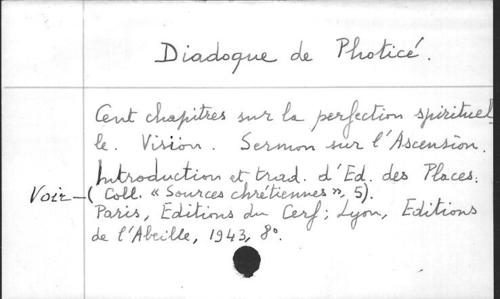 Diadoque de Photicé.
Cent chapitres sur la perfection spirituel-
le. Vision. Sermon sur l'Ascension.
Introduction et trad. d'Ed. des Places.
Voir — (Coll. « Sources chrétiennes », 5).
Paris, Editions du Cerf ; Lyon, Editions
de l'Abeille, 1943, 8°.